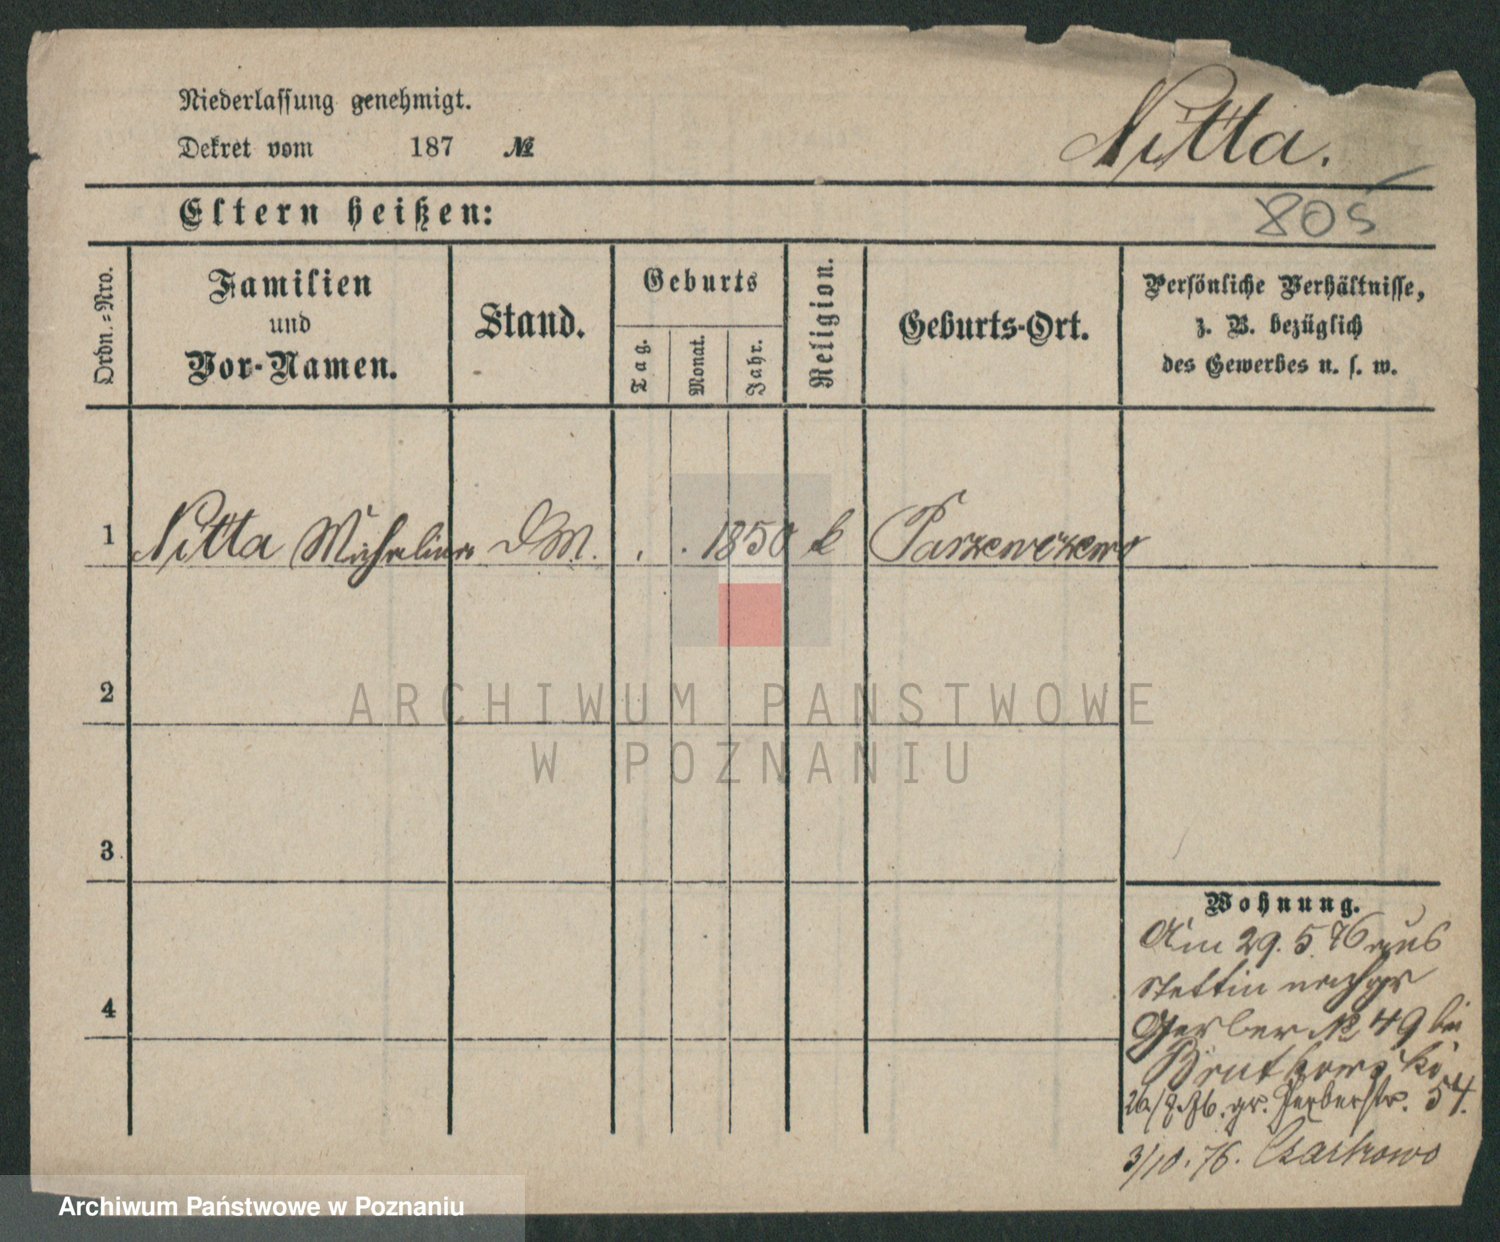 Niederlassung genehmigt.
Dekret vom 187 №
Nitta.
Eltern heißen:
805
Ordn.-Nro.
Familien
und
Vor-Namen.
Stand.
Geburts
Tag.
Monat.
Jahr.
Religion.
Geburts-Ort.
Persönliche Verhältnisse,
z. B. bezüglich
des Gewerbes u. s. w.
1 Nitta DM. . . 1850 k Parzenczewo
2
ARCHIWUM PAŃSTWOWE
W POZNANIU
3
Wohnung.
Am 29. 5. 76 aus
Stettin nach gr
4
Gerber № 49 bei
gr. Gerberstr. 54.
3/10. 76. Czarkowo
Archiwum Państwowe w Poznaniu